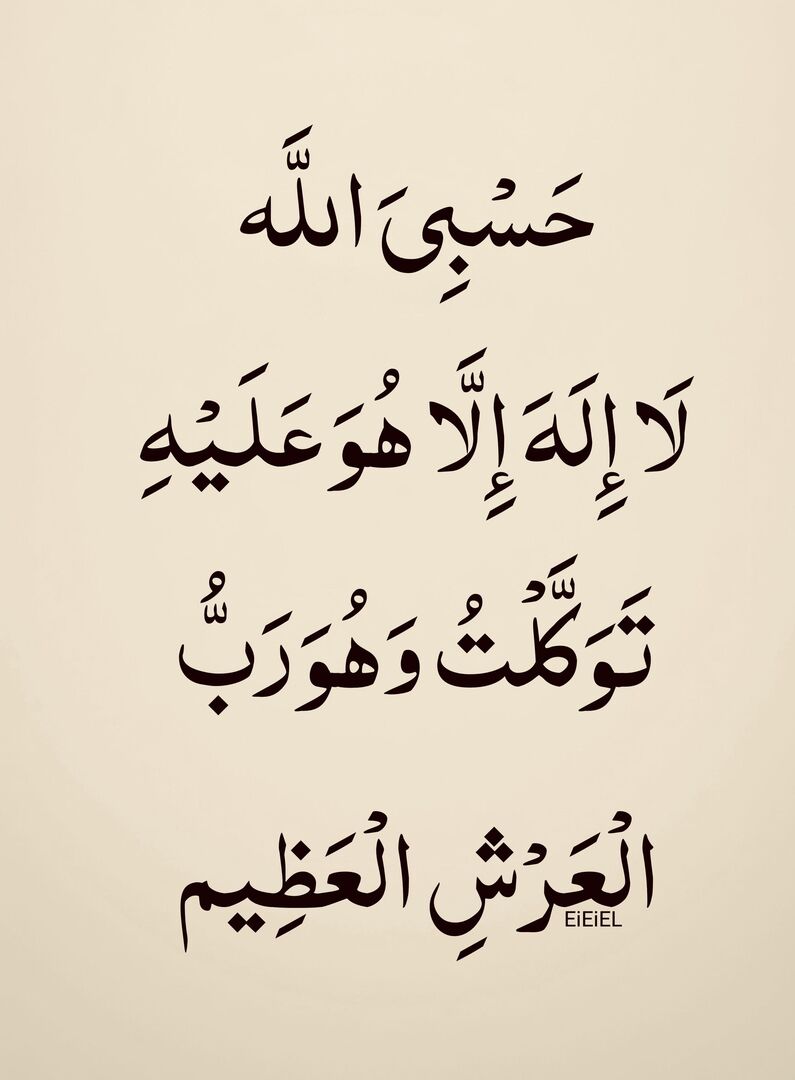 حَسْبِىَ اللَّه
لَا إِلَهَ إِلَّا هُوَ عَلَيْهِ
تَوَكَّلْتُ وَهُوَ رَبُّ
الْعَرْشِ الْعَظِيم
EiEiEL